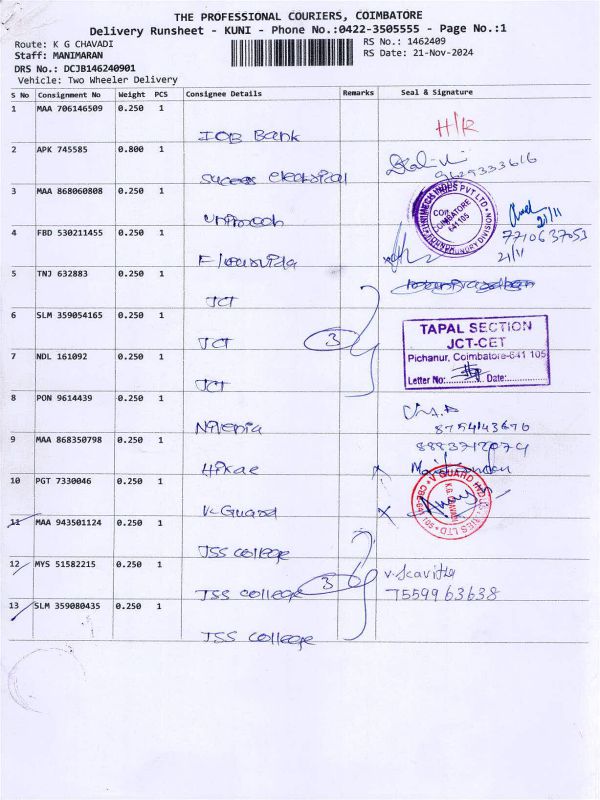 THE PROFESSIONAL COURIERS, COIMBATORE
Delivery Runsheet - KUNI - Phone No.:0422-3505555 - Page No.:1
Route: K G CHAVADI RS No.: 1462409
Staff: MANIMARAN RS Date: 21-Nov-2024
DRS No.: DCJB146240901
Vehicle: Two Wheeler Delivery
S No Consignment No Weight PCS Consignee Details Remarks Seal & Signature
1 MAA 706146509 0.250 1
IOB Bank H/R
2 APK 745585 0.800 1
success electrical 9629333616
3 MAA 868060808 0.250 1
COIMBATORE 641105
21/11
4 FBD 530211455 0.250 1 7710637053
21/11
5 TNJ 632883 0.250 1
JCT
6 SLM 359054165 0.250 1
JCT 3
TAPAL SECTION
JCT-CET
Pichanur, Coimbatore-641 105
Letter No: Date:
7 NDL 161092 0.250 1
JCT
8 PON 9614439 0.250 1
8754143670
9 MAA 868350798 0.250 1 8883712079
Hikae
10 PGT 7330046 0.250 1
V-Guard
V GUARD INDUSTRIES LTD
11 MAA 943501124 0.250 1
JSS college
12 MYS 51582215 0.250 1
JSS college 3 7559963638
13 SLM 359080435 0.250 1
JSS college